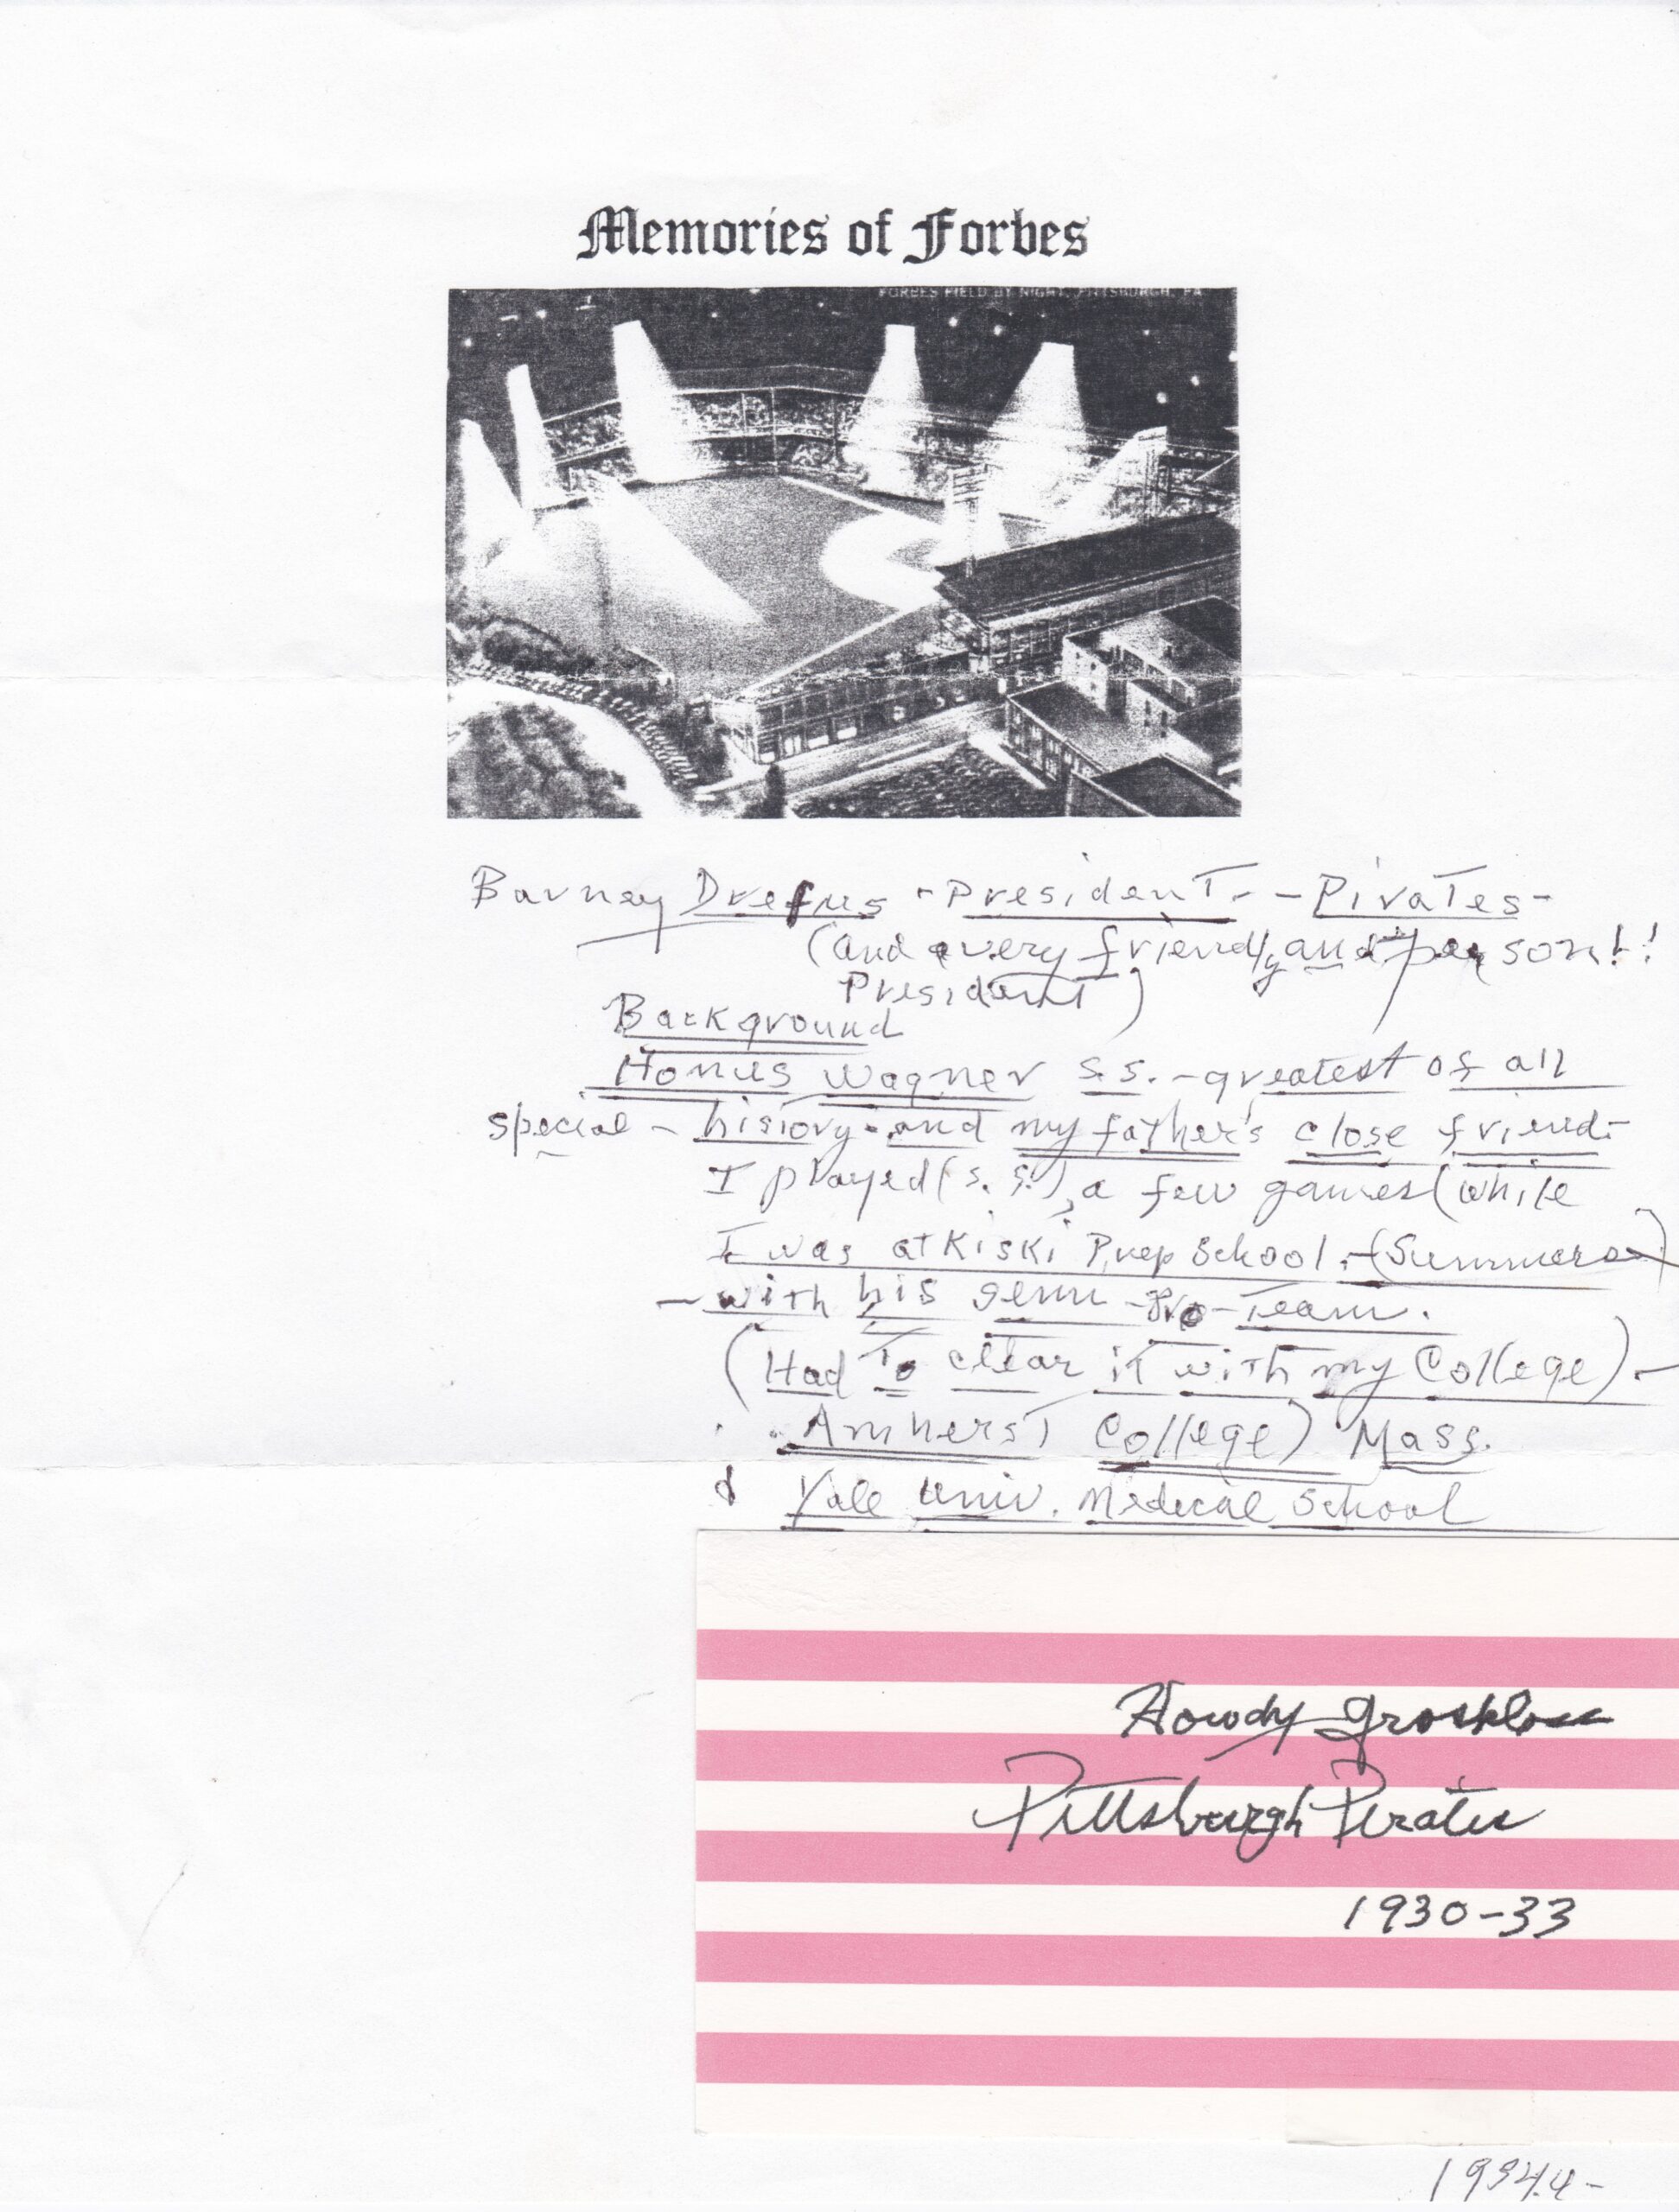 Memories of Forbes
FORBES FIELD BY NIGHT, PITTSBURGH, PA
Barney Drefus - President - - Pirates -
(and a very friendly and person!!
President)
Background
Honus Wagner s.s. - greatest of all
special - history - and my father's close friend -
I played (s.s.), a few games (while
I was at Kiski Prep School. - (Summers)
- with his semi - Pro - Team.
(Had To clear it with my College) -
Amherst College) Mass.
& Yale Univ. Medical School
Howdy Groskloss
Pittsburgh Pirates
1930-33